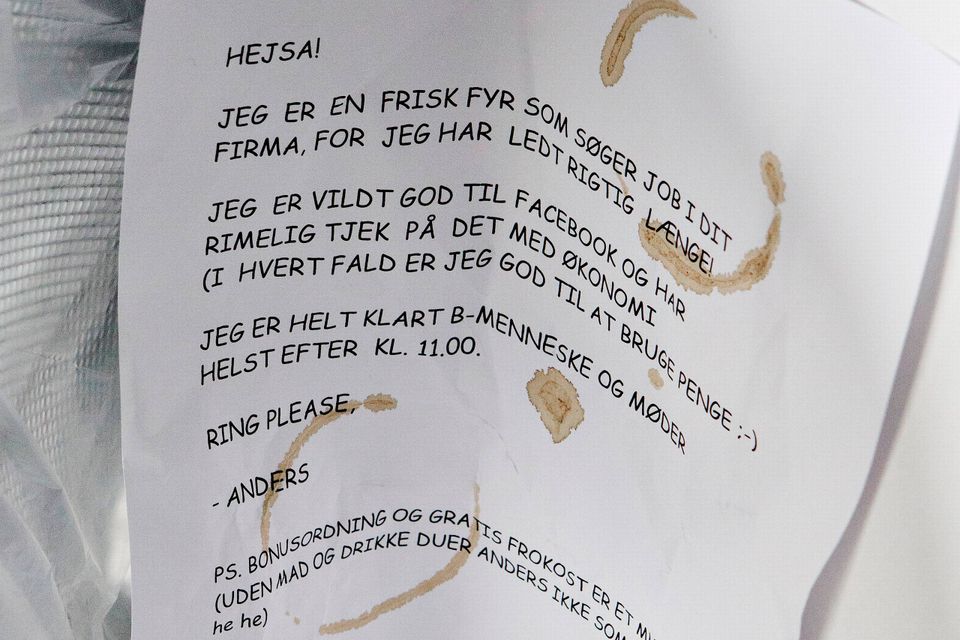 HEJSA!
JEG ER EN FRISK FYR SOM SØGER JOB I DIT
FIRMA, FOR JEG HAR LEDT RIGTIG LÆNGE!
JEG ER VILDT GOD TIL FACEBOOK OG HAR
RIMELIG TJEK PÅ DET MED ØKONOMI
(I HVERT FALD ER JEG GOD TIL AT BRUGE PENGE ;-)
JEG ER HELT KLART B-MENNESKE OG MØDER
HELST EFTER KL. 11.00.
RING PLEASE,
- ANDERS
PS. BONUSORDNING OG GRATIS FROKOST ER ET
(UDEN MAD OG DRIKKE DUER ANDERS IKKE SOM
he he)